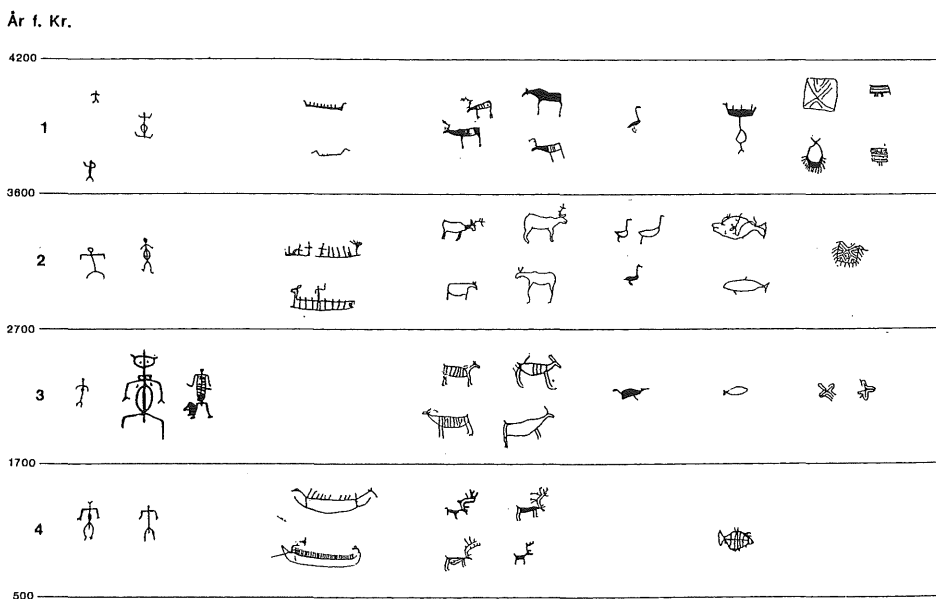 År f. Kr.
4200
1
3600
2
2700
3
1700
4
500